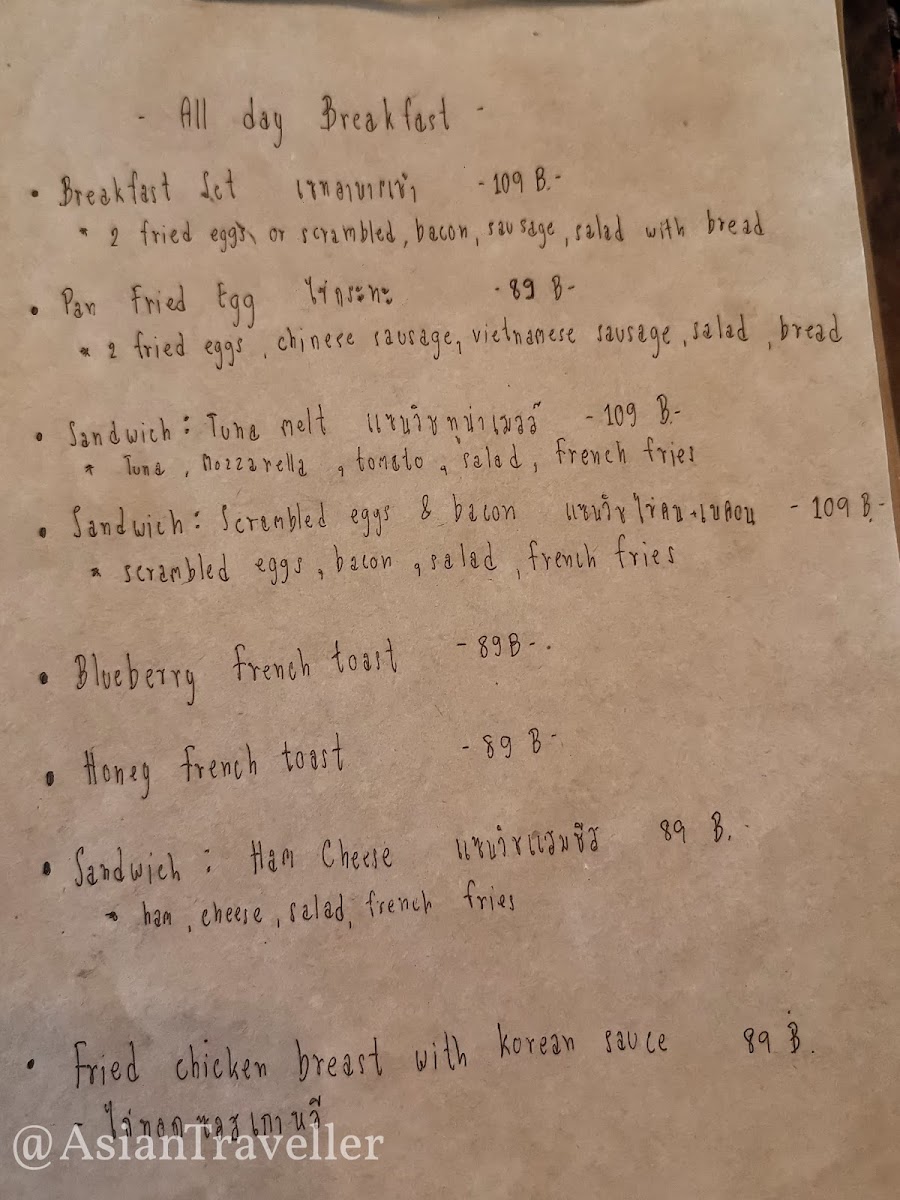 - All day Breakfast -
• Breakfast Set เซทอาหารเช้า - 109 B.-
* 2 fried eggs or scrambled, bacon, sausage, salad with bread
• Pan Fried Egg ไข่กระทะ - 89 B-
* 2 fried eggs, chinese sausage, vietnamese sausage, salad, bread
• Sandwich: Tuna melt แซนวิชทูน่าเมลล์ - 109 B.-
* Tuna, Mozzarella, tomato, salad, french fries
• Sandwich: Scrambled eggs & bacon แซนวิชไข่คน+เบคอน - 109 B.-
* scrambled eggs, bacon, salad, french fries
• Blueberry french toast - 89 B-.
• Honey french toast - 89 B-
• Sandwich: Ham Cheese แซนวิชแฮมชีส 89 B.-
* ham, cheese, salad, french fries
• Fried chicken breast with korean sauce 89 B.
- ไก่ทอดซอสเกาหลี
@AsianTraveller